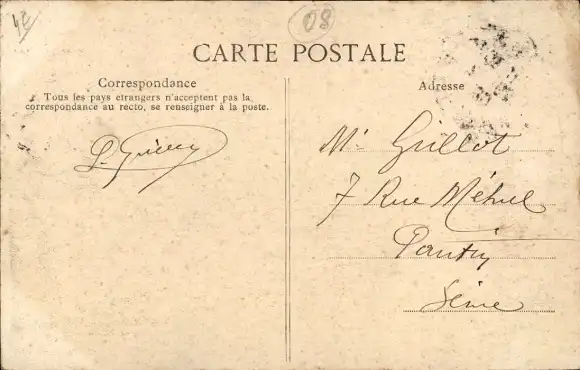 08
CARTE POSTALE
Correspondance
Tous les pays etrangers n'acceptent pas la
correspondance au recto, se renseigner à la poste.
Adresse
Mr Grillot
7 Rue Méhul
Pantin
Seine